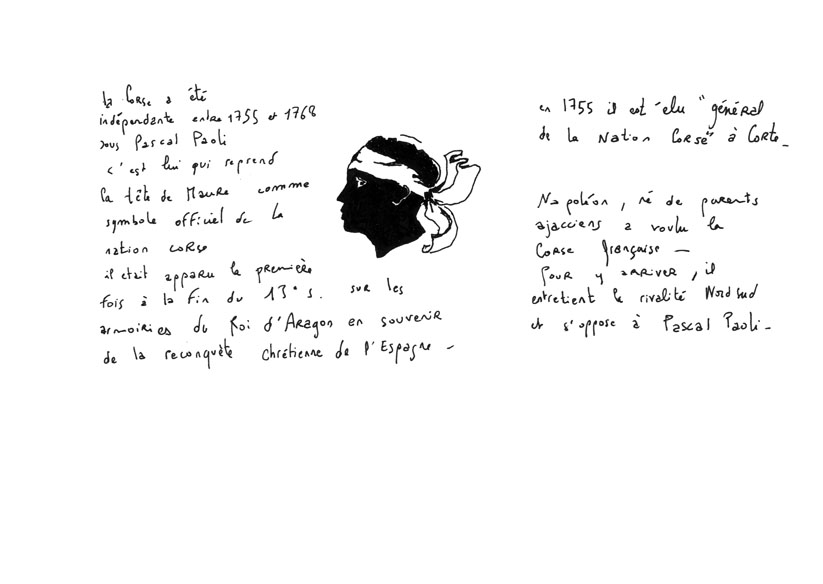 la Corse a été
indépendante entre 1755 et 1768
sous Pascal Paoli
c'est lui qui reprend
la tête de Maure comme
symbole officiel de la
nation corse
il était apparu la première
fois à la fin du 13°s. sur les
armoiries du Roi d'Aragon en souvenir
de la reconquête chrétienne de l'Espagne -
en 1755 il est élu "général
de la Nation Corse" à Corte -
Napoléon, né de parents
ajacciens a voulu la
Corse française -
pour y arriver, il
entretient la rivalité Nord Sud
et s'oppose à Pascal Paoli -